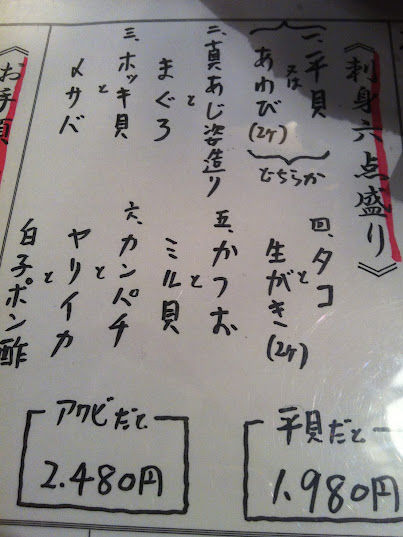 《刺身六点盛り》
一、平貝
又は
あわび(2ヶ)
どちらか
二、真あじ姿造り
と
まぐろ
三、ホッキ貝
と
〆サバ
四、タコ
と
生がき(2ヶ)
五、かつお
と
ミル貝
六、カンパチ
と
ヤリイカ
と
白子ポン酢
平貝だと
1.980円
アワビだと
2.480円
《お手頃